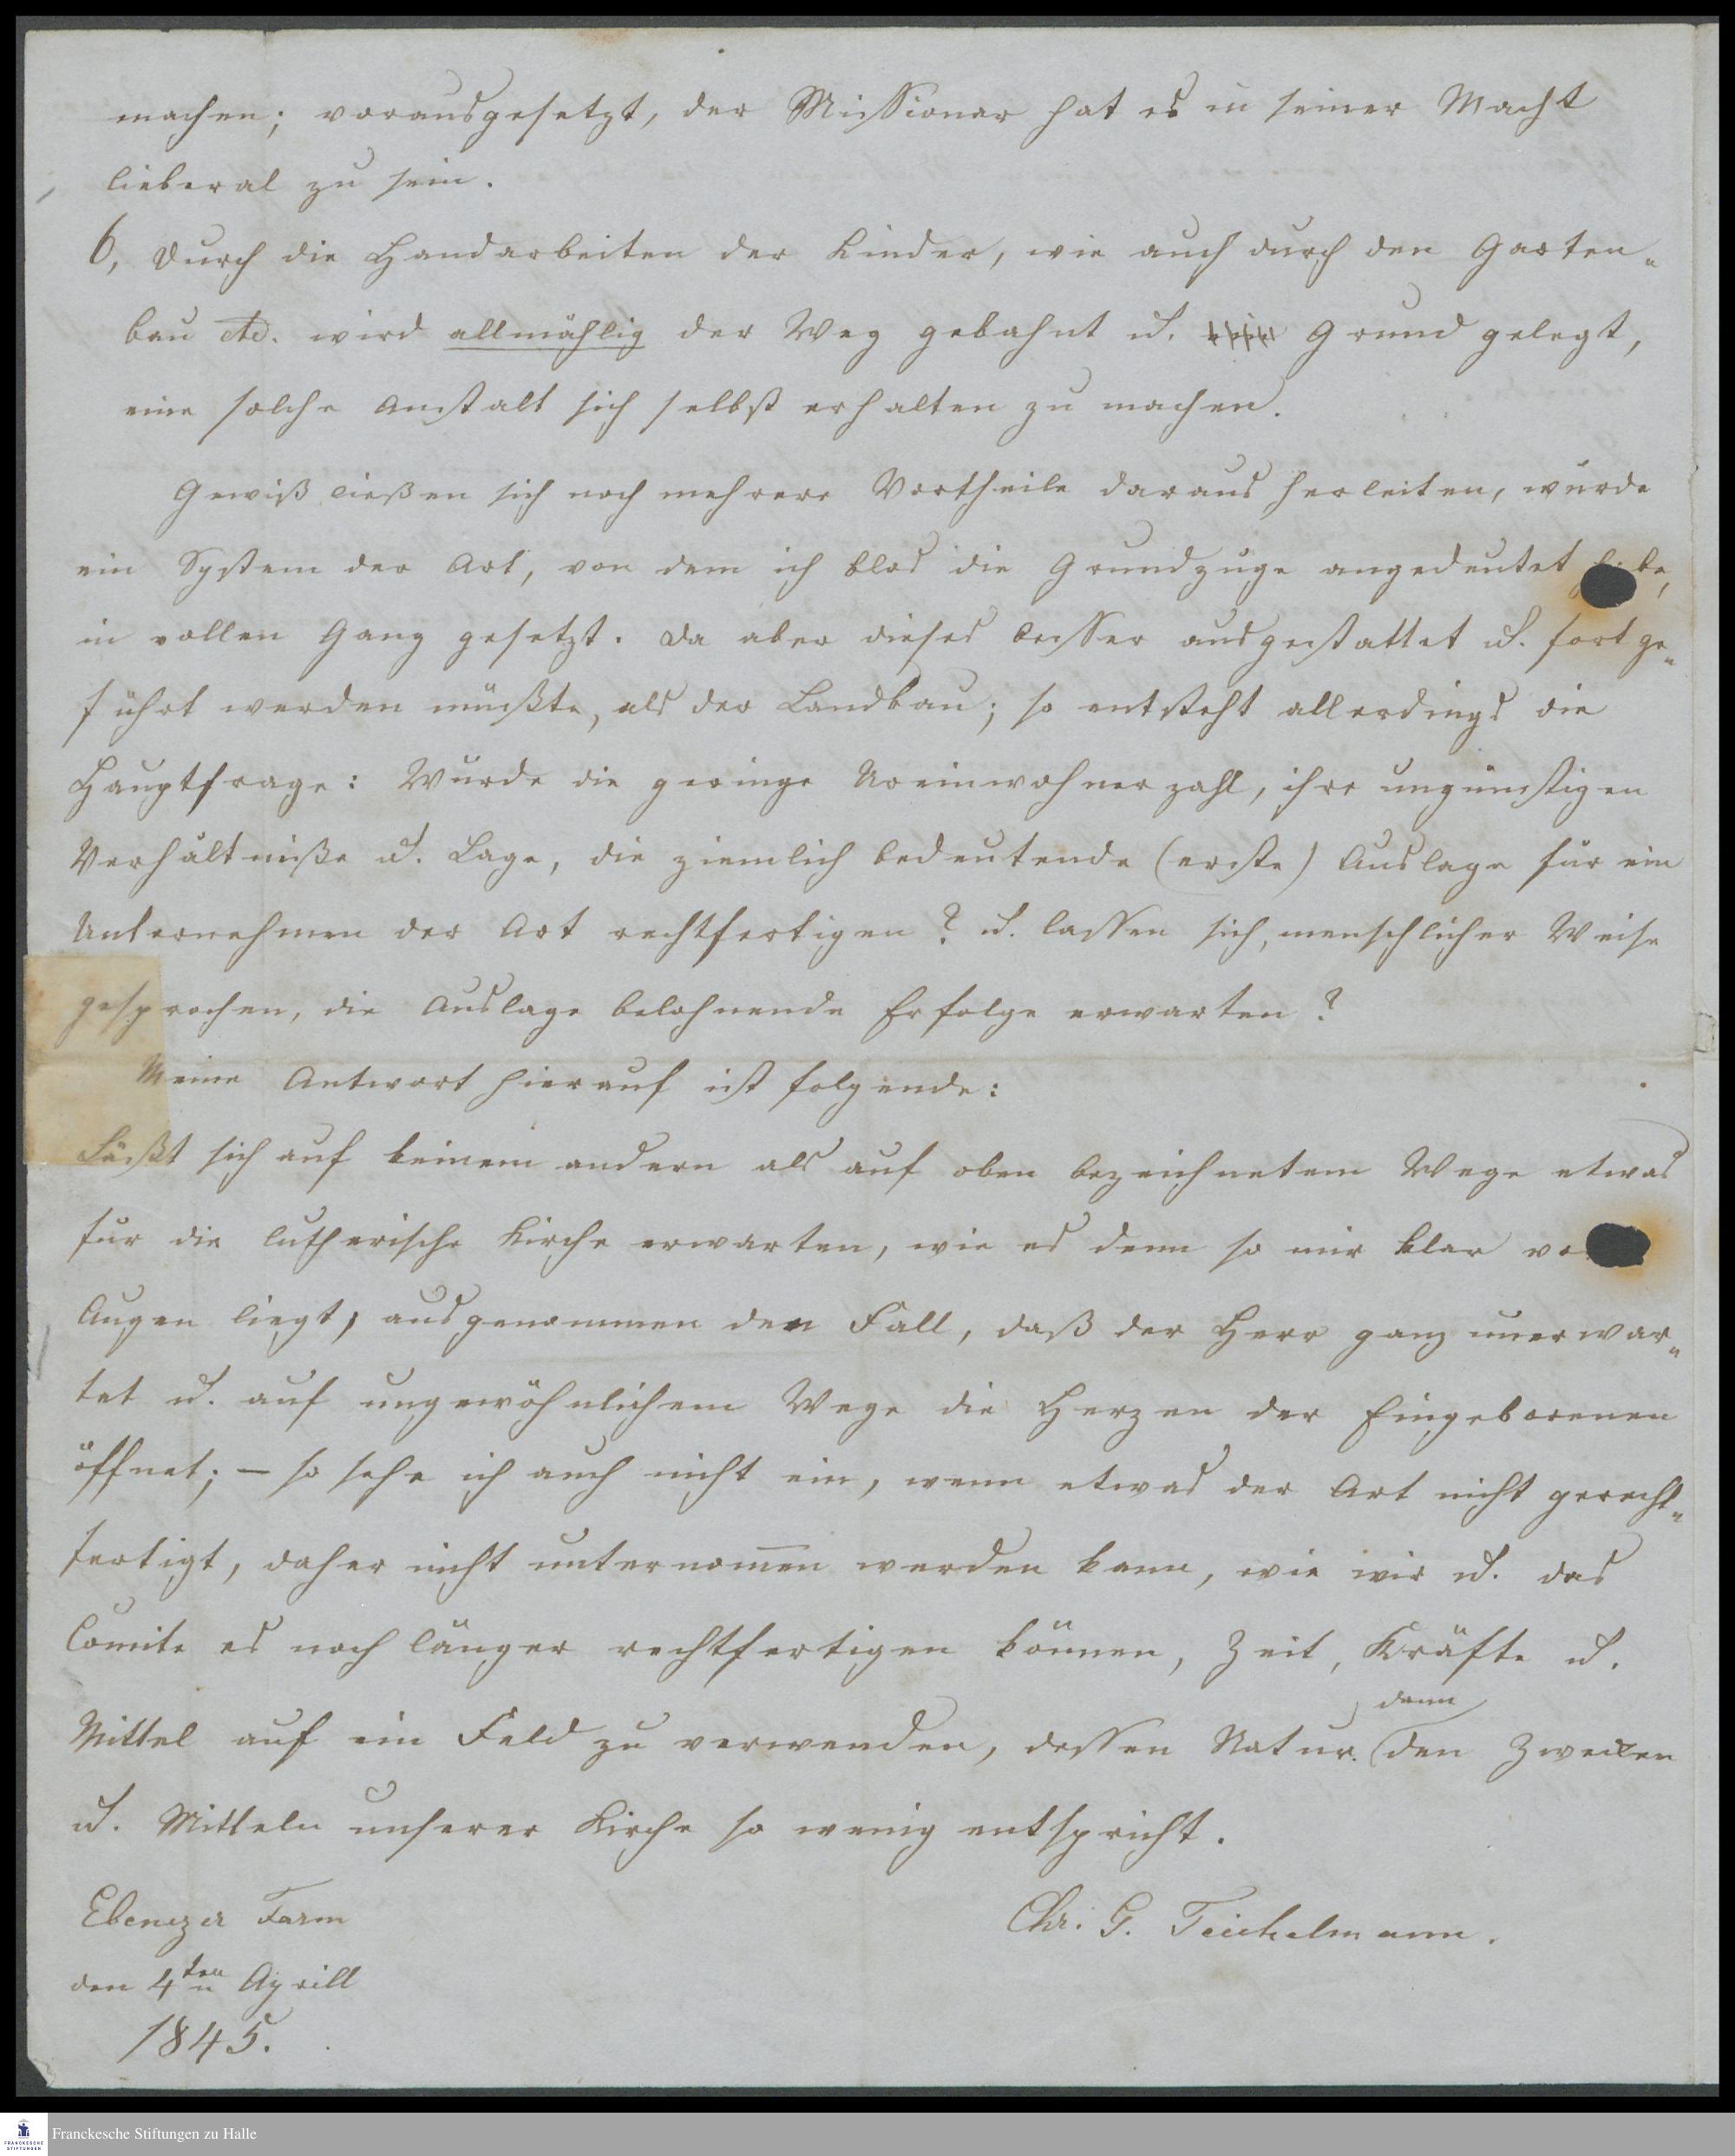 machen; vorausgesetzt, der Missionar hat es in seiner Macht
lieberal zu sein.
6, Durch die Handarbeiten der Kinder, wie auch durch den Garten„
bau etc. wird allmählig der Weg gebahnt u. Grund gelegt,
eine solche Anstalt sich selbst erhalten zu machen.
Gewiß ließen sich noch mehrere Vortheile daraus herleiten, würde
ein System der Art, von dem ich blos die Grundzüge angedeutet habe,
in vollen Gang gesetzt. Da aber dieses besser ausgestattet u. fortge„
führt werden müßte, als der Landbau; so entsteht allerdings die
Hauptfrage: Würde die geringe Ureinwohnerzahl, ihre ungünstigen
Verhältniße u. Lage, die ziemlich bedeutende (erste) Auslage für ein
Unternehmen der Art rechtfertigen? u. lassen sich, menschlicher Weise
gesprochen, die Auslage belohnende Erfolge erwarten?
Meine Antwort hierauf ist folgende:
Läßt sich auf keinem andern als auf oben bezeichnetem Wege etwas
für die lutherische Kirche erwarten, wie es denn so mir klar vor
Augen liegt, ausgenommen den Fall, daß der Herr ganz unerwar„
tet u. auf ungewöhnlichem Wege die Herzen der Eingeborenen
öffnet; — so sehe ich auch nicht ein, wenn etwas der Art nicht gerecht„
fertigt, daher nicht unternom̅en werden kann, wie wir u. das
Comite es noch länger rechtfertigen können, Zeit, Kräfte u.
dann
Mittel auf ein Feld zu verwenden, dessen Natur den Zwecken
u. Mitteln unserer Kirche so wenig entspricht.
Ebenezer Farm
Chr. G. Teichelmann.
den 4ten Aprill
1845.
Franckesche Stiftungen zu Halle
FRANCKESCHE
STIFTUNGEN